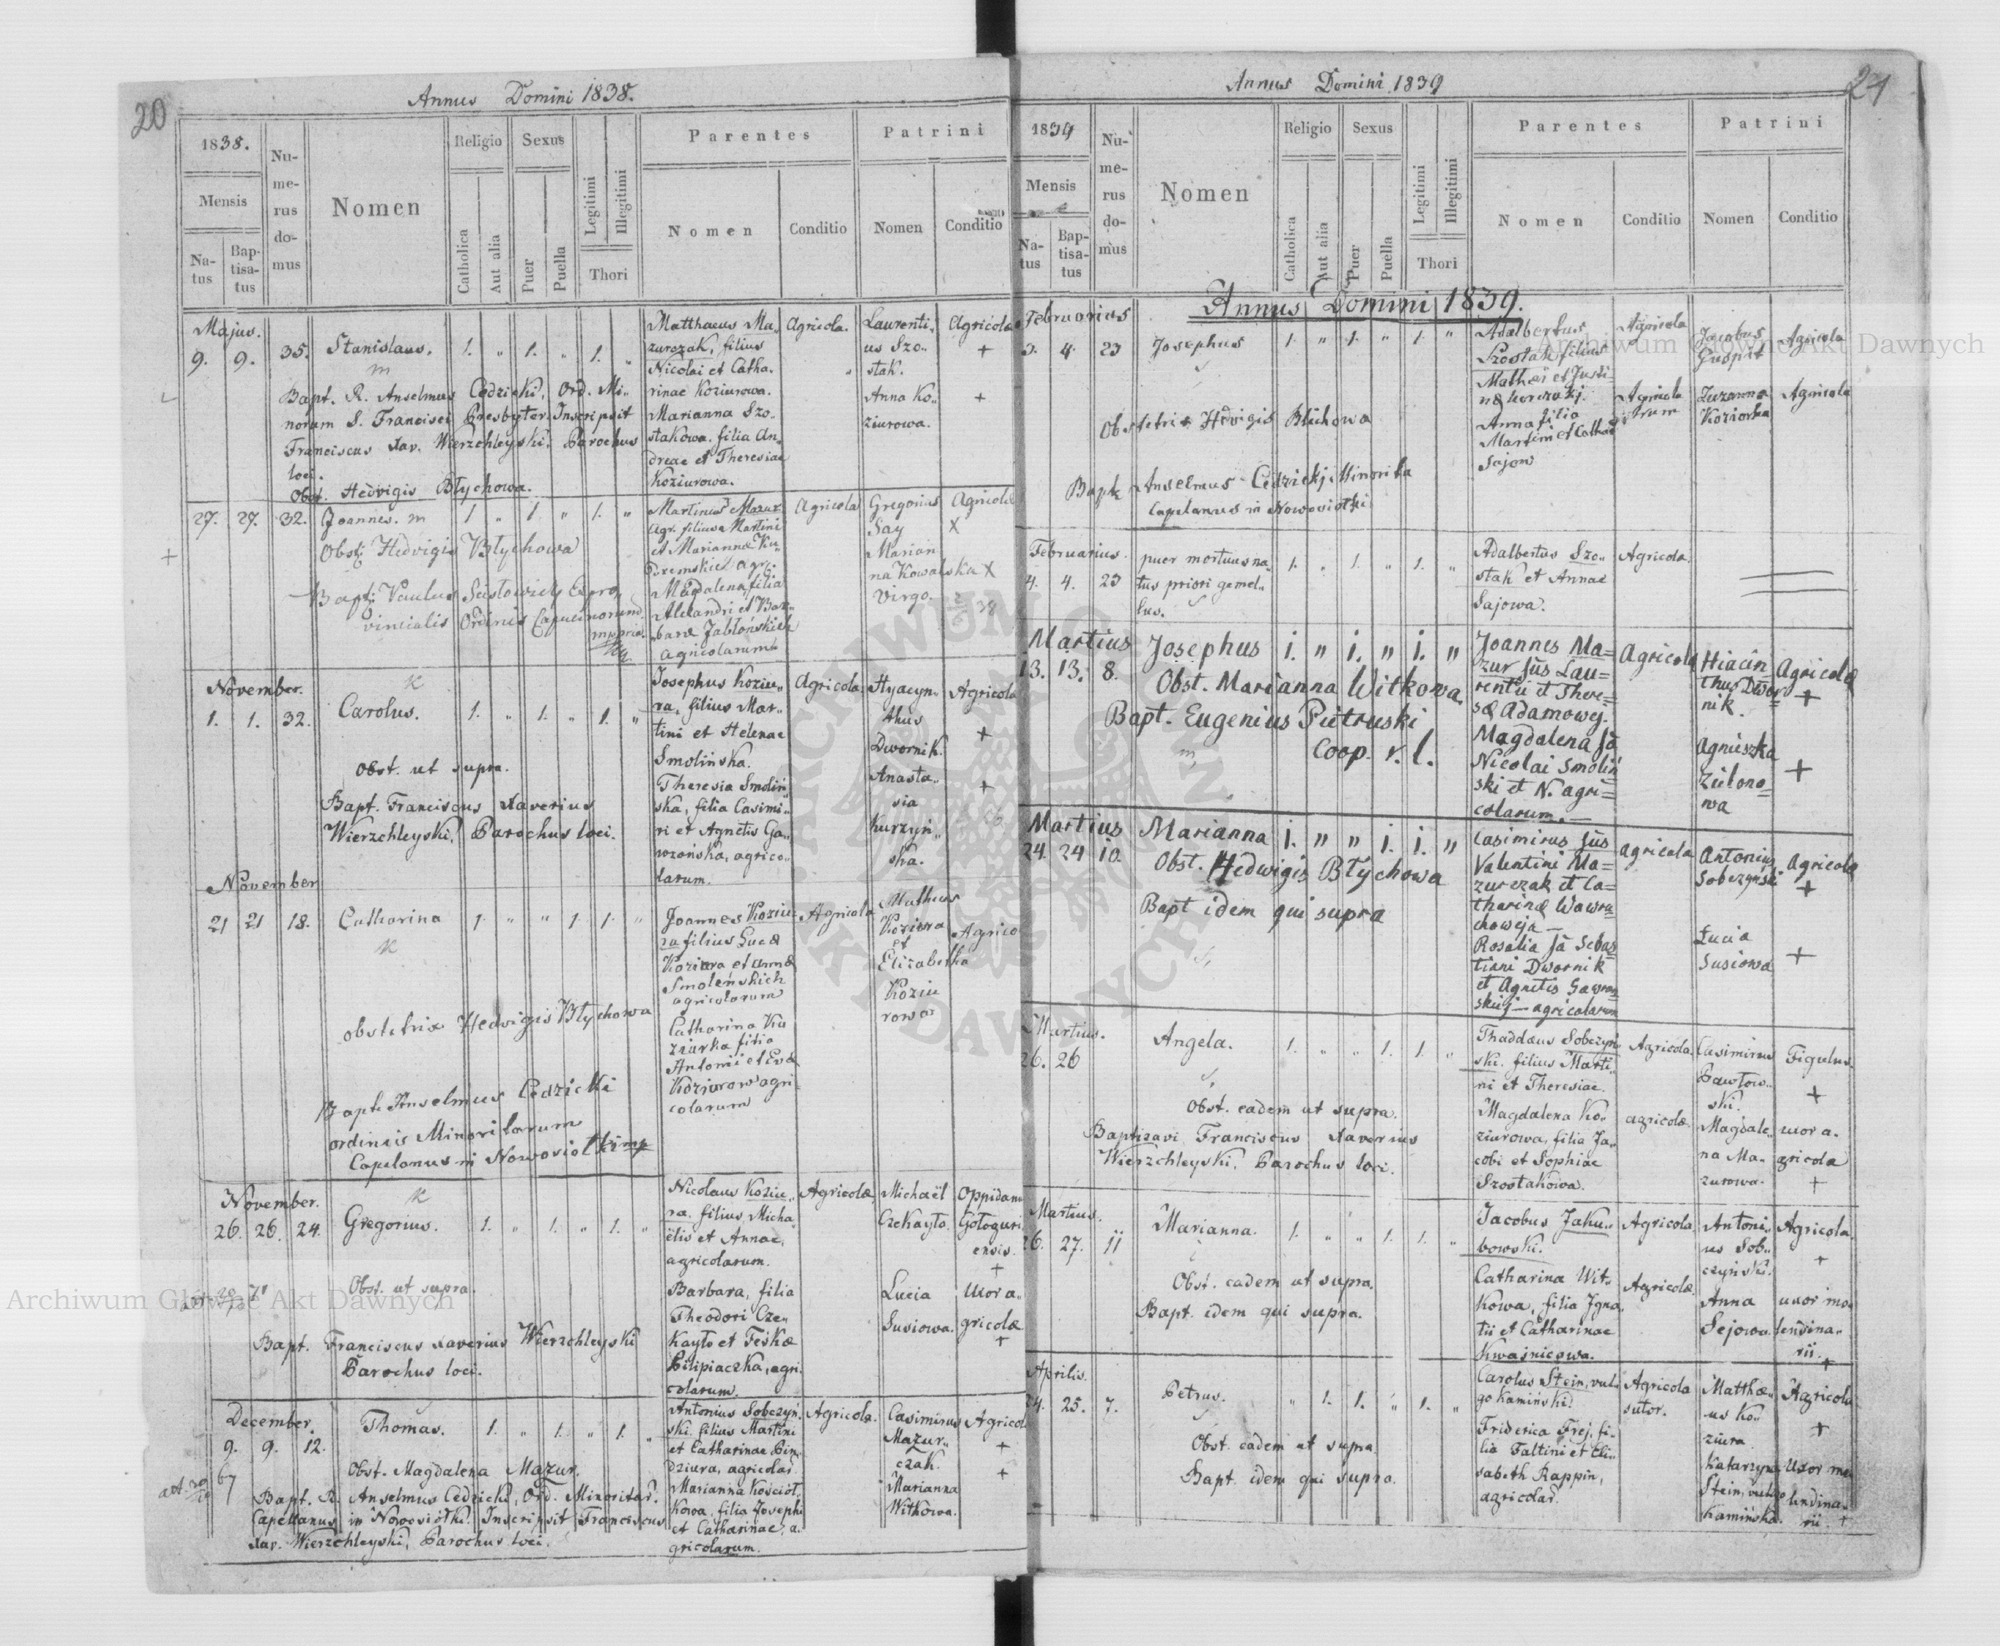 20
Annus Domini 1838.
1838.
Mensis
Na-
tus
Bap-
tisa-
tus
Nu-
me-
rus
do-
mus
Nomen
Religio
Catholica
Aut alia
Sexus
Puer
Puella
Legitimi
Illegitimi
Thori
Parentes
Nomen
Conditio
Patrini
Nomen
Conditio
Majus.
9. 9. 35. Stanislaus. 1. „ 1. „ 1. „
Bapt. R. Anselmus Cedzicki, Ord. Mi-
norum S. Francisci Presbyter. Inscripsit
Franciscus Xav. Wierzchleyski. Parochus
loci.
Obst. Hedvigis Błychowa.
Matthaeus Ma-
zurczak, filius
Nicolai et Catha-
rinae Koziurowa.
Marianna Szo-
stakowa. filia An-
dreae et Theresiae
Koziurowa.
Agricola.
Laurenti-
us Szo-
stak.
Anna Ko-
ziurowa.
Agricolae
+
+
27. 27. 32. Joannes. 1 „ 1 „ 1. „
Obst: Hedvigis Błychowa
Bapt: Paulus
vincialis Ordinis Capucinorum
Martinus Mazur
Agr. filius Martini
et Mariannae
Magdalena filia
Alexandri et Bar-
barae Jabłońskich
agricolarum
Agricola
Gregorius
Say
Marian
na Kowalska
Virgo.
Agricolae
X
X
November.
1. 1. 32. Carolus. 1. „ 1. „ 1. „
Obst. ut supra.
Bapt. Franciscus Xaverius
Wierzchleyski. Parochus loci.
Josephus Koziu-
ra, filius Mar-
tini et Helenae
Smolińska.
Theresia Smoliń-
ska, filia Casimi-
ri et Agnetis Ga-
wrońska, agrico-
larum.
Agricola.
Hyacyn-
thus
Dwornik.
Anasta-
sia
Kurzyń-
ska.
Agricola
+
+
November
21 21 18. Catharina 1. „ „ 1 1. „
obstetrix Hedvigis Błychowa
Bapt. Anselmus Cedzicki
ordinis Minoritarum
Capelanus in Nowosiołki
Joannes Koziu-
ra filius Lucae
Koziura et Annae
Smoleńskich
agricolarum
Catharina
filia
Antonii et Evae
Koziurow agri-
colarum
Agricola
Matheus
Koziura
et
Elizabetha
Koziu
rowa
Agrico
November.
26. 26. 24. Gregorius. 1. „ 1. „ 1. „
Obst. ut supra.
Bapt. Franciscus Xaverius Wierzchleyski
Parochus loci.
Nicolaus Koziu-
ra. filius Micha-
ëlis et Annae,
agricolarum.
Barbara, filia
Theodori Cze-
kayło et Feskae
Pilipiaczka, agri-
colarum.
Agricolae
Michaël
Czekayło.
Lucia
Susiowa.
Oppidanus
Gołoguri
ensis.
+
Uxor a-
gricolae
+
December.
9. 9. 12. Thomas. 1. „ 1. „ 1. „
Obst. Magdalena Mazur.
Bapt. R. Anselmus Cedzicki, Ord. Minoritar.
Capellanus in Nowosiołki. Inscripsit Franciscus
Xav. Wierzchleyski, Parochus loci.
Antonius Sobczyń-
ski. filius Martini
et Catharinae Pin-
dziura, agricolar.
Marianna Kościół-
kowa, filia Josephi
et Catharinae, a-
gricolarum.
Agricola.
Casimirus
Mazur-
czak.
Marianna
Witkowa.
Agricol
+
+
21
Annus Domini 1839
1839
Mensis
Na-
tus
Bap-
tisa-
tus
Nu-
me-
rus
do-
mus
Nomen
Religio
Catholica
Aut alia
Sexus
Puer
Puella
Legitimi
Illegitimi
Thori
Parentes
Nomen
Conditio
Patrini
Nomen
Conditio
Annus Domini 1839.
Februarius
3. 4. 23 Josephus 1. „ 1. „ 1. „
Obstetrix Hedvigis Blichowa
Bapt. Anselmus Cedzickj Minorita
Capelanus in Nowosiołki
Adalbertus
Szostak filius
Mathei et Justi-
nae
Anna filia
Martini et Catha
Sajow
Agricola
Agricola
rum
Jacobus
Guspit
Zuzanna
Koziorka
Agricola
Agricola
Februarius.
4. 4. 23 puer mortuus na- 1. „ 1. „ 1. „
tus priori gemel-
lus.
Adalbertus Szo-
stak et Annae
Sajowa.
Agricola.
Martius
13. 13. 8. Josephus 1. „ 1. „ 1. „
Obst. Marianna Witkowa.
Bapt. Eugenius Pietruski
Coop. r. l.
Joannes Ma-
zur fus Lau-
rentii et There-
sae Adamowej.
Magdalena fa
Nicolai Smoliń
ski et N. agri-
colarum. —
Agricola
Hiacin
thus Dwor
nik.
Agnieszka
Zielono-
wa
Agricolae
+
+
Martius
24. 24 10. Marianna 1. „ „ 1. 1. „
Obst. Hedwigis Błychowa
Bapt idem qui supra
Casimirus fus
Valentini Ma-
zurczak et Ca-
tharinae Wawru
choweja —
Rosalia fa Sebas
tiani Dwornik
et Agnetis Gawron
skiej — agricolarum
agricola
Antonius
Sobczyński
Łucia
Susiowa
Agricola
+
+
Martius.
26. 26 Angela. 1. „ „ 1. 1. „
Obst. eadem ut supra.
Baptizavi Franciscus Xaverius
Wierzchleyski. Parochus loci.
Thaddaeus Sobczyń-
ski. filius Marti-
ni et Theresiae.
Magdalena Ko-
ziurowa, filia Ja-
cobi et Sophiae
Szostakowa.
Agricola.
agricolae.
Casimirus
Pawłow-
ski.
Magdale-
na Ma-
zurowa.
Figulus.
+
uxor a-
gricola
+
Martius.
26. 27. 11 Marianna. 1. „ „ 1. 1. „
Obst. eadem ut supra.
Bapt. idem qui supra.
Jacobus Jaku-
bowski.
Catharina Wit-
kowa, filia Igna-
tii et Catharinae
Kwaśnicowa.
Agricola.
Agricolae.
Antoni-
us Sob-
czyński.
Anna
Sejowa
Agricola.
+
uxor mo-
lendina-
rii. +
Aprilis.
24. 25. 7. Petrus. „ 1. 1. „ 1. „
Obst. eadem ut supra.
Bapt. idem qui supra.
Carolus Stein, vul-
go Kamiński.
Friderica Frej. fi-
lia Faltini et Eli-
sabeth Rappin,
agricolar.
Agricola
sutor.
Matthae-
us Ko-
ziura.
Katarzyna
Stein, vulgo
Kamińska.
Agricola
+
Uxor mo-
lendina-
rii. +
Archiwum Główne Akt Dawnych
Archiwum Główne Akt Dawnych
ARCHIWUM GŁÓWNE AKT DAWNYCH